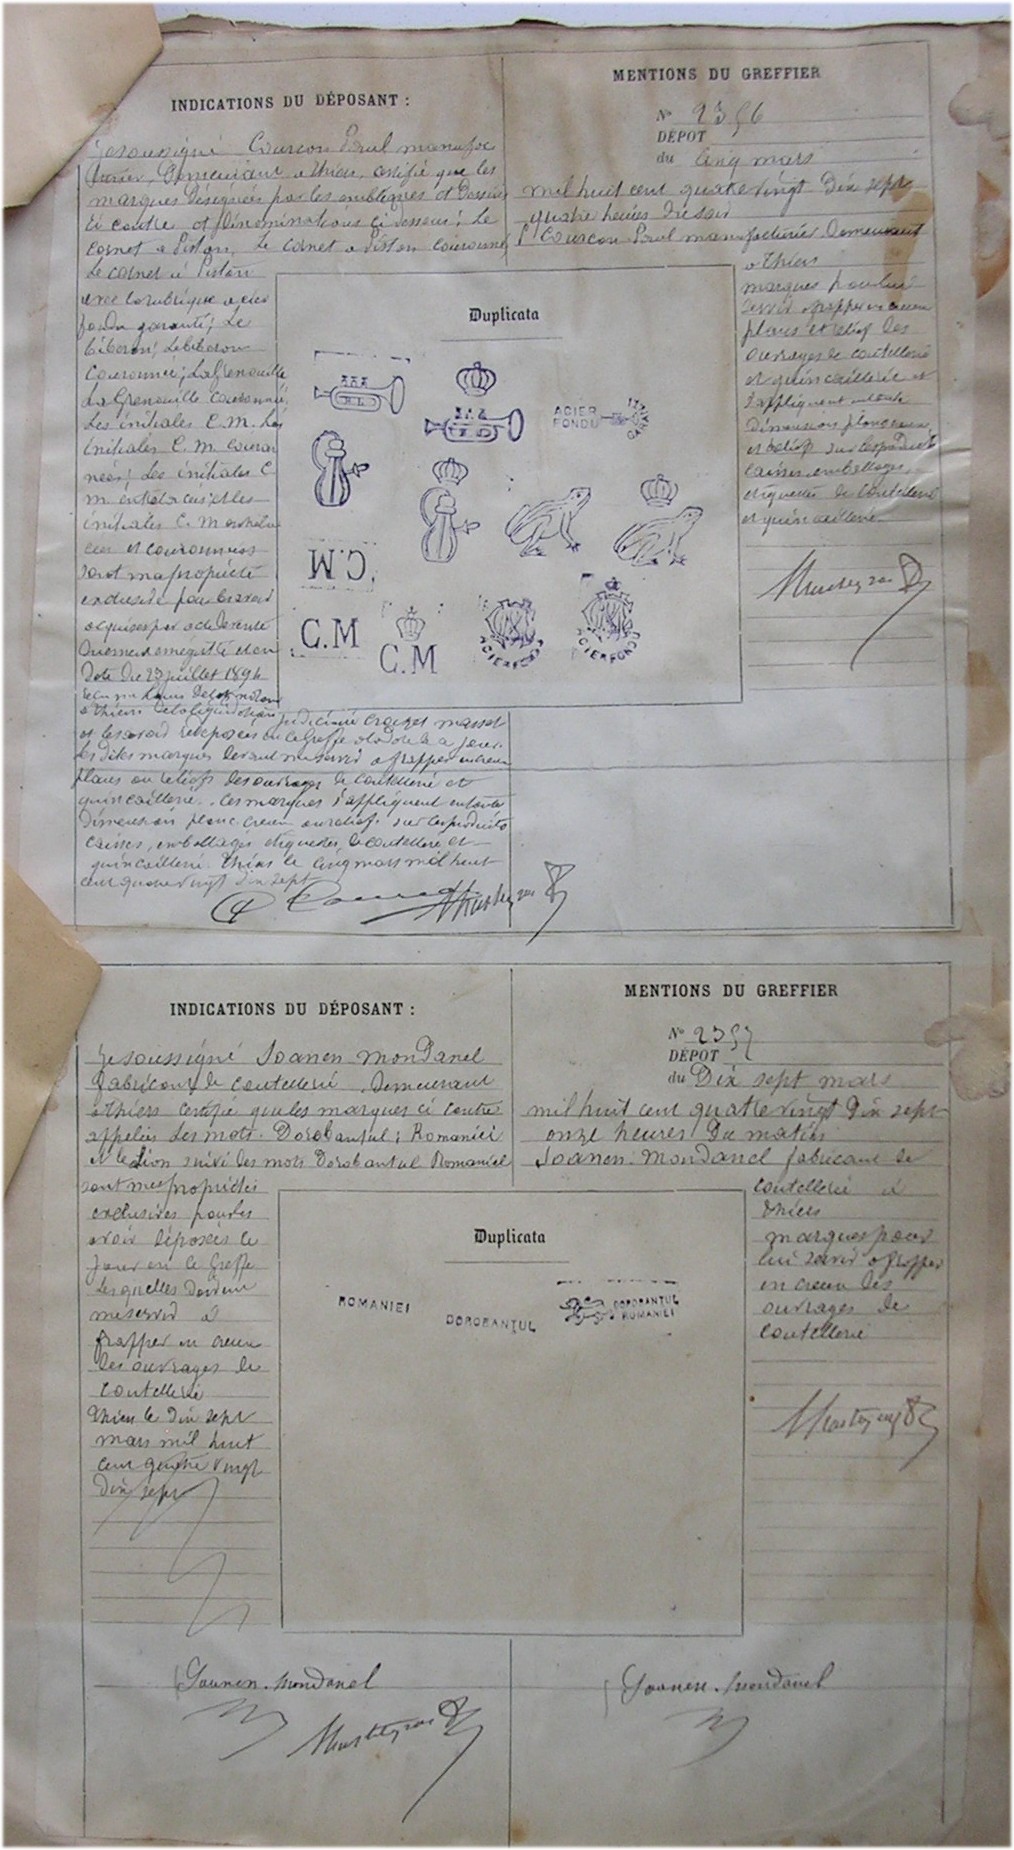 INDICATIONS DU DÉPOSANT :
Je soussigné Courcon Paul manufac
turier, Demeurant a Thiers, certifie que les
marques Désignées par les emblèmes et Dessins
Ci contre et Dénominations Ci dessous : Le
Cornet a Piston, Le Cornet a Piston couronné,
Le Cornet a Piston
avec la rubrique acier
fondu garanti ; Le
Biberon ; Le biberon
Couronné ; La Grenouille
La Grenouille Couronnée,
Les initiales C. M. Les
initiales C. M. Couron
nées ; Les initiales C
M. entrelacées et les
initiales C. M entrela
cées et couronnées
sont ma propriété
exclusive pour les avoir
acquises par acte
Date du 23 juillet 1894
a thiers judiciaire Croizet
et les avoir déposées au Greffe
les dites marques devant me servir a frapper en creux
planes ou reliefs des ouvrages de Coutellerie et
quincaillerie. Ces marques s'appliquent en toutes
Dimensions plane creux ou relief sur les produits
Caisses, emballages, étiquettes, de coutellerie et
quincaillerie. Thiers le cinq mars mil huit
cent quatre vingt dix sept
MENTIONS DU GREFFIER
N° 2356
DÉPOT
du Cinq mars
mil huit cent quatre vingt Dix sept
quatre heures Du soir
Courcon Paul manufacturier Demeurant
a thiers
marques pour lui
servir a frapper en creux
planes et relief les
ouvrages de coutellerie
et quincaillerie et
s'appliquent en toute
Dimension plane creux
et relief sur les produits
caisses, emballages,
étiquettes de Coutellerie
et quincaillerie
Duplicata
ACIER
FONDU
GARANTI
C.M
C.M
C.M
ACIER FONDU
ACIER FONDU
INDICATIONS DU DÉPOSANT :
Je soussigné Joanen Mondanel
fabricant de coutellerie Demeurant
a thiers certifie que les marques ci contre
appelées Les mots. Dorobantul ; Romaniei
et le Lion suivi des mots Dorobantul Romaniei
sont mes propriétés
exclusives pour les
avoir déposées ce
jour au le Greffe
Lesquelles doivent
me servir à
frapper en creux
les ouvrages de
coutellerie
Thiers le Dix sept
mars mil huit
cent quatre vingt
Dix sept
MENTIONS DU GREFFIER
N° 2357
DÉPOT
du Dix sept mars
mil huit cent quatre vingt Dix sept
onze heures Du matin
Joanen. Mondanel fabricant de
coutellerie à
thiers
marques pour
lui servir a frapper
en creux les
ouvrages de
coutellerie
Duplicata
ROMANIEI
DOROBANTUL
DOROBANTUL
ROMANIEI
Joanen. Mondanel
Joanen. Mondanel